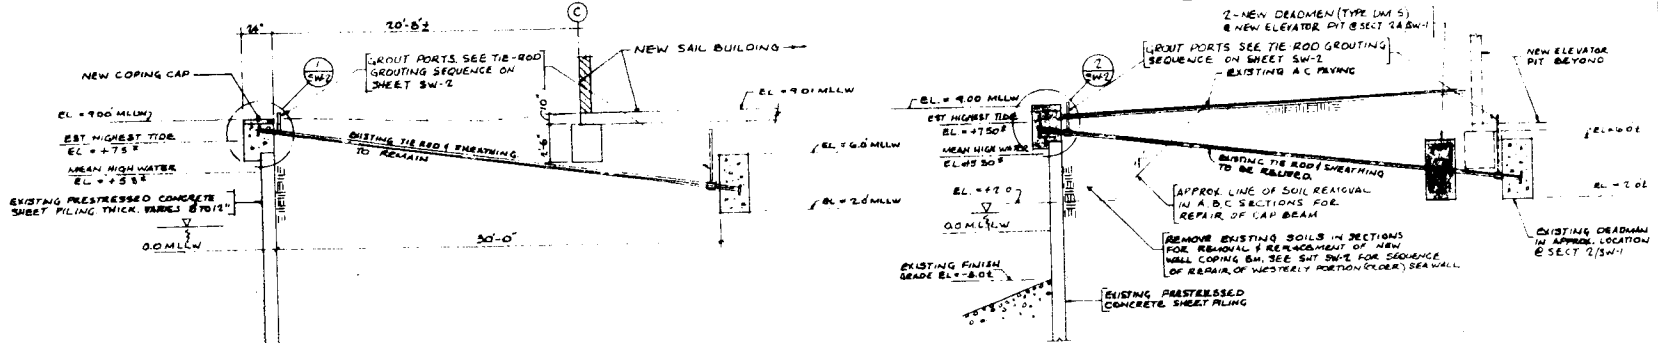 24"
20'-8"±
C
NEW SAIL BUILDING
1
SW-2
GROUT PORTS, SEE TIE-ROD
GROUTING SEQUENCE ON
SHEET SW-2
NEW COPING CAP
EL = 9.00' MLLW
EST HIGHEST TIDE
EL = +7.5±
MEAN HIGH WATER
EXISTING PRESTRESSED CONCRETE
SHEET PILING THICK. VARIES 8 TO 12"
0.0 MLLW
EXISTING TIE ROD & SHEATHING
TO REMAIN
10"
2'-6"
EL = 9.01 MLLW
EL = 6.0' MLLW
EL = 2.0' MLLW
30'-0"
2-NEW DEADMEN (TYPE UM 5)
@ NEW ELEVATOR PIT @ SECT 2A/SW-1
2
SW-2
GROUT PORTS SEE TIE-ROD GROUTING
SEQUENCE ON SHEET SW-2
EXISTING A C PAVING
NEW ELEVATOR
PIT BEYOND
EL. = 9.00 MLLW
EST HIGHEST TIDE
EL = +7.50±
MEAN HIGH WATER
EL. +5.30±
EL. = +2.0
0.0 M.L.L.W
EXISTING TIE ROD & SHEATHING
TO BE REUSED.
APPROX. LINE OF SOIL REMOVAL
IN A, B, C SECTIONS FOR
REPAIR OF CAP BEAM
EL = 6.0±
EL = 2.0±
REMOVE EXISTING SOILS IN SECTIONS
FOR REMOVAL & REPLACEMENT OF NEW
WALL COPING BM. SEE SHT SW-2 FOR SEQUENCE
OF REPAIR OF WESTERLY PORTION (OLDER) SEAWALL
EXISTING DEADMAN
IN APPROX. LOCATION
@ SECT 2/SW-1
EXISTING FINISH
GRADE EL = -8.0±
EXISTING PRESTRESSED
CONCRETE SHEET PILING